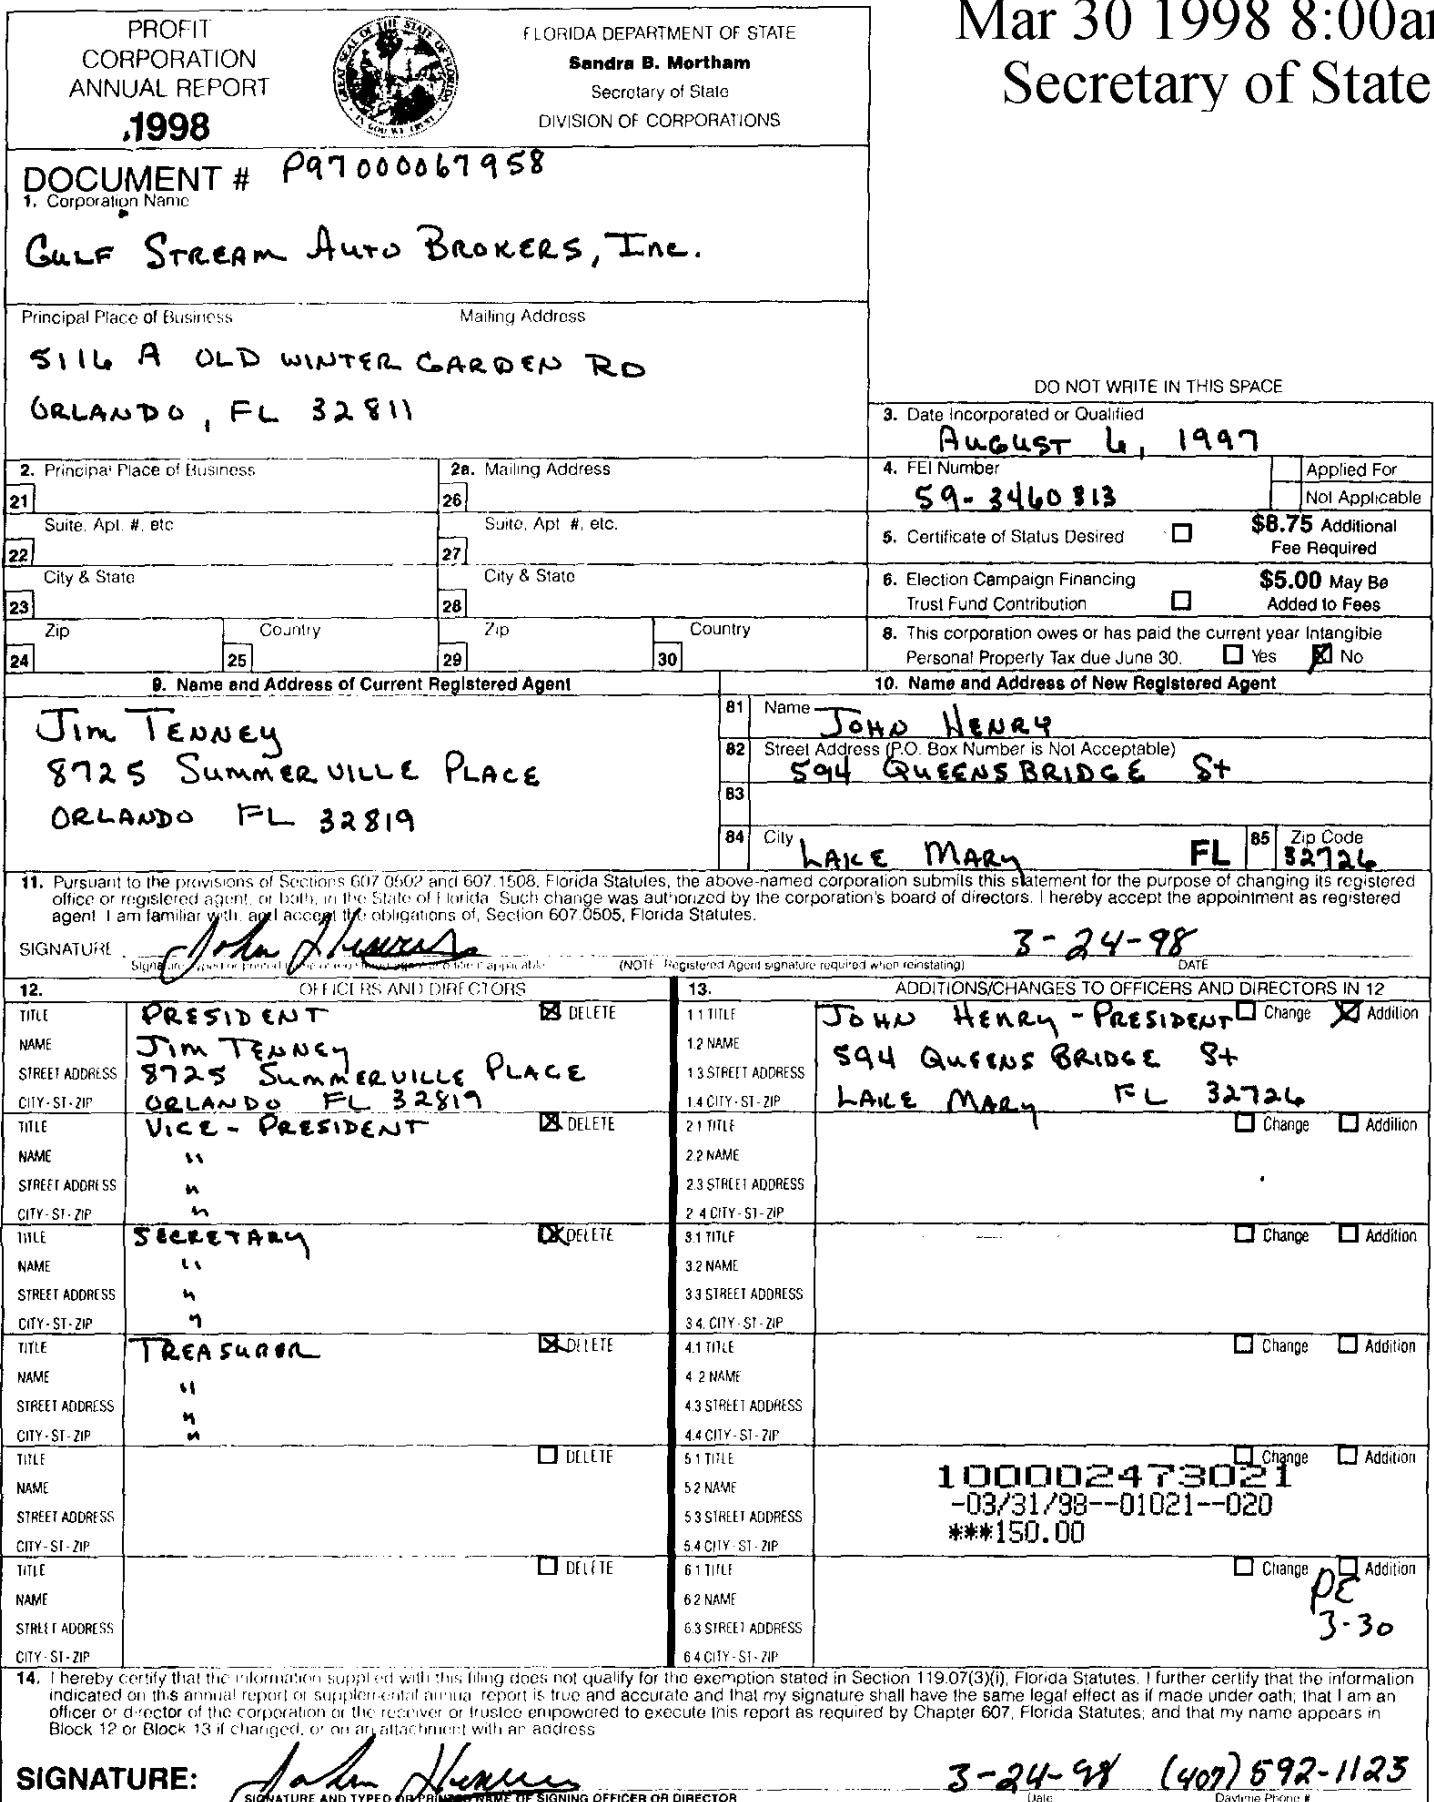 PROFIT
CORPORATION
ANNUAL REPORT
1998
FLORIDA DEPARTMENT OF STATE
Sandra B. Mortham
Secretary of State
DIVISION OF CORPORATIONS
Mar 30 1998 8:00a
Secretary of State
DOCUMENT # P97000067958
1. Corporation Name
GULF STREAM AUTO BROKERS, INC.
Principal Place of Business Mailing Address
5116 A OLD WINTER GARDEN RD
ORLANDO, FL 32811
DO NOT WRITE IN THIS SPACE
3. Date Incorporated or Qualified
AUGUST 6, 1997
2. Principal Place of Business 2a. Mailing Address
4. FEI Number Applied For
59-3460313 Not Applicable
21 26
Suite, Apt. #, etc Suite, Apt #, etc.
22 27
5. Certificate of Status Desired $8.75 Additional
Fee Required
City & State City & State
23 28
6. Election Campaign Financing $5.00 May Be
Trust Fund Contribution Added to Fees
Zip Country Zip Country
24 25 29 30
8. This corporation owes or has paid the current year Intangible
Personal Property Tax due June 30. Yes No
9. Name and Address of Current Registered Agent
JIM TENNEY
8725 SUMMERVILLE PLACE
ORLANDO FL 32819
10. Name and Address of New Registered Agent
81 Name JOHN HENRY
82 Street Address (P.O. Box Number is Not Acceptable)
594 QUEENSBRIDGE St
83
84 City LAKE MARY FL 85 Zip Code 32726
11. Pursuant to the provisions of Sections 607.0502 and 607.1508, Florida Statutes, the above-named corporation submits this statement for the purpose of changing its registered
office or registered agent, or both, in the State of Florida. Such change was authorized by the corporation's board of directors. I hereby accept the appointment as registered
agent. I am familiar with, and accept the obligations of, Section 607.0505, Florida Statutes.
SIGNATURE John Henry 3-24-98
(NOTE Registered Agent signature required when reinstating) DATE
12. OFFICERS AND DIRECTORS
TITLE PRESIDENT DELETE
NAME JIM TENNEY
STREET ADDRESS 8725 SUMMERVILLE PLACE
CITY-ST-ZIP ORLANDO FL 32819
TITLE VICE-PRESIDENT DELETE
NAME "
STREET ADDRESS "
CITY-ST-ZIP "
TITLE SECRETARY DELETE
NAME "
STREET ADDRESS "
CITY-ST-ZIP "
TITLE TREASURER DELETE
NAME "
STREET ADDRESS "
CITY-ST-ZIP "
TITLE DELETE
NAME
STREET ADDRESS
CITY-ST-ZIP
TITLE DELETE
NAME
STREET ADDRESS
CITY-ST-ZIP
13. ADDITIONS/CHANGES TO OFFICERS AND DIRECTORS IN 12
1.1 TITLE JOHN HENRY - PRESIDENT Change Addition
1.2 NAME 594 QUEENS BRIDGE St
1.3 STREET ADDRESS
1.4 CITY-ST-ZIP LAKE MARY FL 32726
2.1 TITLE Change Addition
2.2 NAME
2.3 STREET ADDRESS
2.4 CITY-ST-ZIP
3.1 TITLE Change Addition
3.2 NAME
3.3 STREET ADDRESS
3.4. CITY-ST-ZIP
4.1 TITLE Change Addition
4.2 NAME
4.3 STREET ADDRESS
4.4 CITY-ST-ZIP
5.1 TITLE Change Addition
100002473021
5.2 NAME
-03/31/98--01021--020
5.3 STREET ADDRESS
***150.00
5.4 CITY-ST-ZIP
6.1 TITLE Change Addition
6.2 NAME PE
6.3 STREET ADDRESS 3-30
6.4 CITY-ST-ZIP
14. I hereby certify that the information supplied with this filing does not qualify for the exemption stated in Section 119.07(3)(i), Florida Statutes. I further certify that the information
indicated on this annual report or supplemental annual report is true and accurate and that my signature shall have the same legal effect as if made under oath; that I am an
officer or director of the corporation or the receiver or trustee empowered to execute this report as required by Chapter 607, Florida Statutes; and that my name appears in
Block 12 or Block 13 if changed, or on an attachment with an address
SIGNATURE: John Henry 3-24-98 (407) 592-1123
SIGNATURE AND TYPED OR PRINTED NAME OF SIGNING OFFICER OR DIRECTOR Date Daytime Phone #